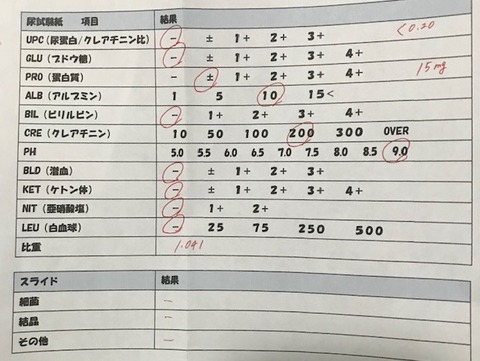 尿試験紙 項目 結果
UPC(尿蛋白/クレアチニン比) − ± 1+ 2+ 3+ <0.20
GLU(ブドウ糖) − ± 1+ 2+ 3+ 4+
PRO(蛋白質) − ± 1+ 2+ 3+ 4+ 15mg
ALB(アルブミン) 1 5 10 15<
BIL(ビリルビン) − 1+ 2+ 3+ 4+
CRE(クレアチニン) 10 50 100 200 300 OVER
PH 5.0 5.5 6.0 6.5 7.0 7.5 8.0 8.5 9.0
BLD(潜血) − ± 1+ 2+ 3+
KET(ケトン体) − ± 1+ 2+ 3+ 4+
NIT(亜硝酸塩) − 1+ 2+
LEU(白血球) − 25 75 250 500
比重 1.041
スライド 結果
細菌 −
結晶 −
その他 −